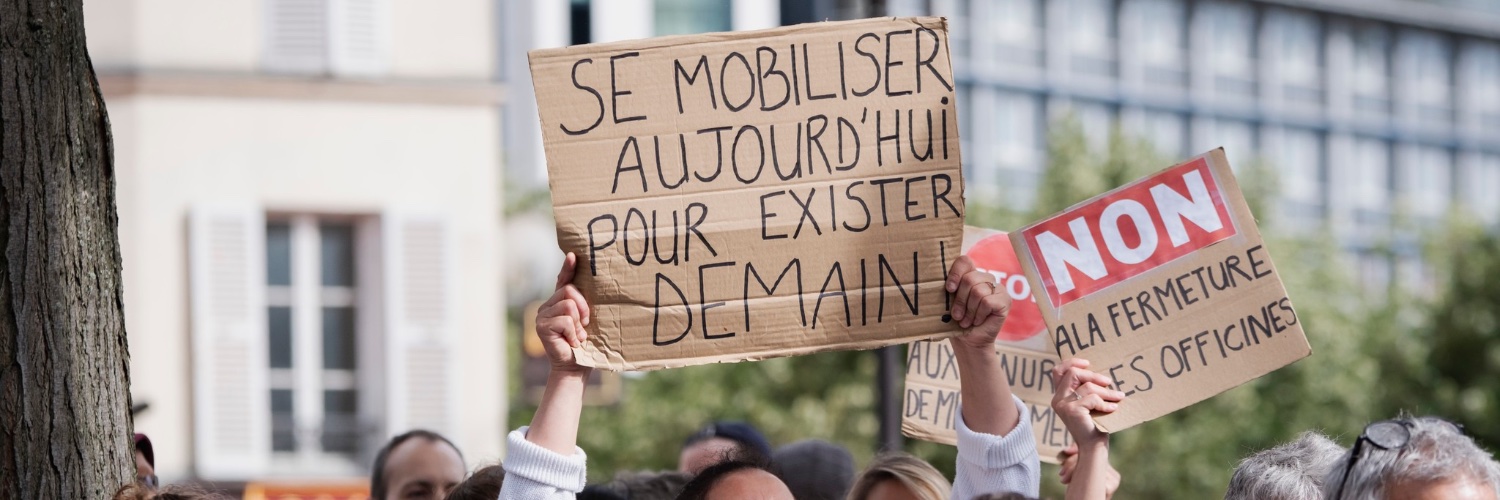 SE MOBILISER
AUJOURD'HUi
POUR EXISTER
DEMAIN !
NON
A LA FERMETURE
ES OFFICINES
AUX